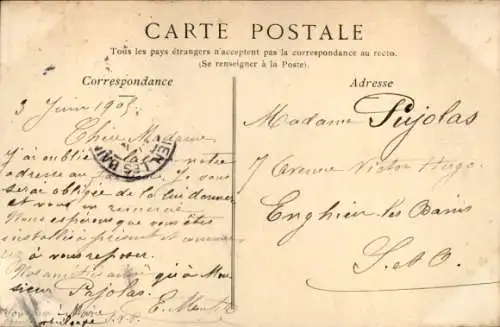 CARTE POSTALE
Tous les pays étrangers n'acceptent pas la correspondance au recto.
(Se renseigner à la Poste).
Correspondance
3 Juin 1905
Chère Madame
J'ai oublié votre
adresse au je vous
serai obligée de la lui donner
et vous en remercie
Nous espérons que vous êtes
installés à présent et commencez
à vous reposer.
Nos amitiés ainsi qu'à Mon-
sieur Pujolas.
Adresse
Madame Pujolas
7 Avenue Victor Hugo
Enghien les Bains
S. et O.